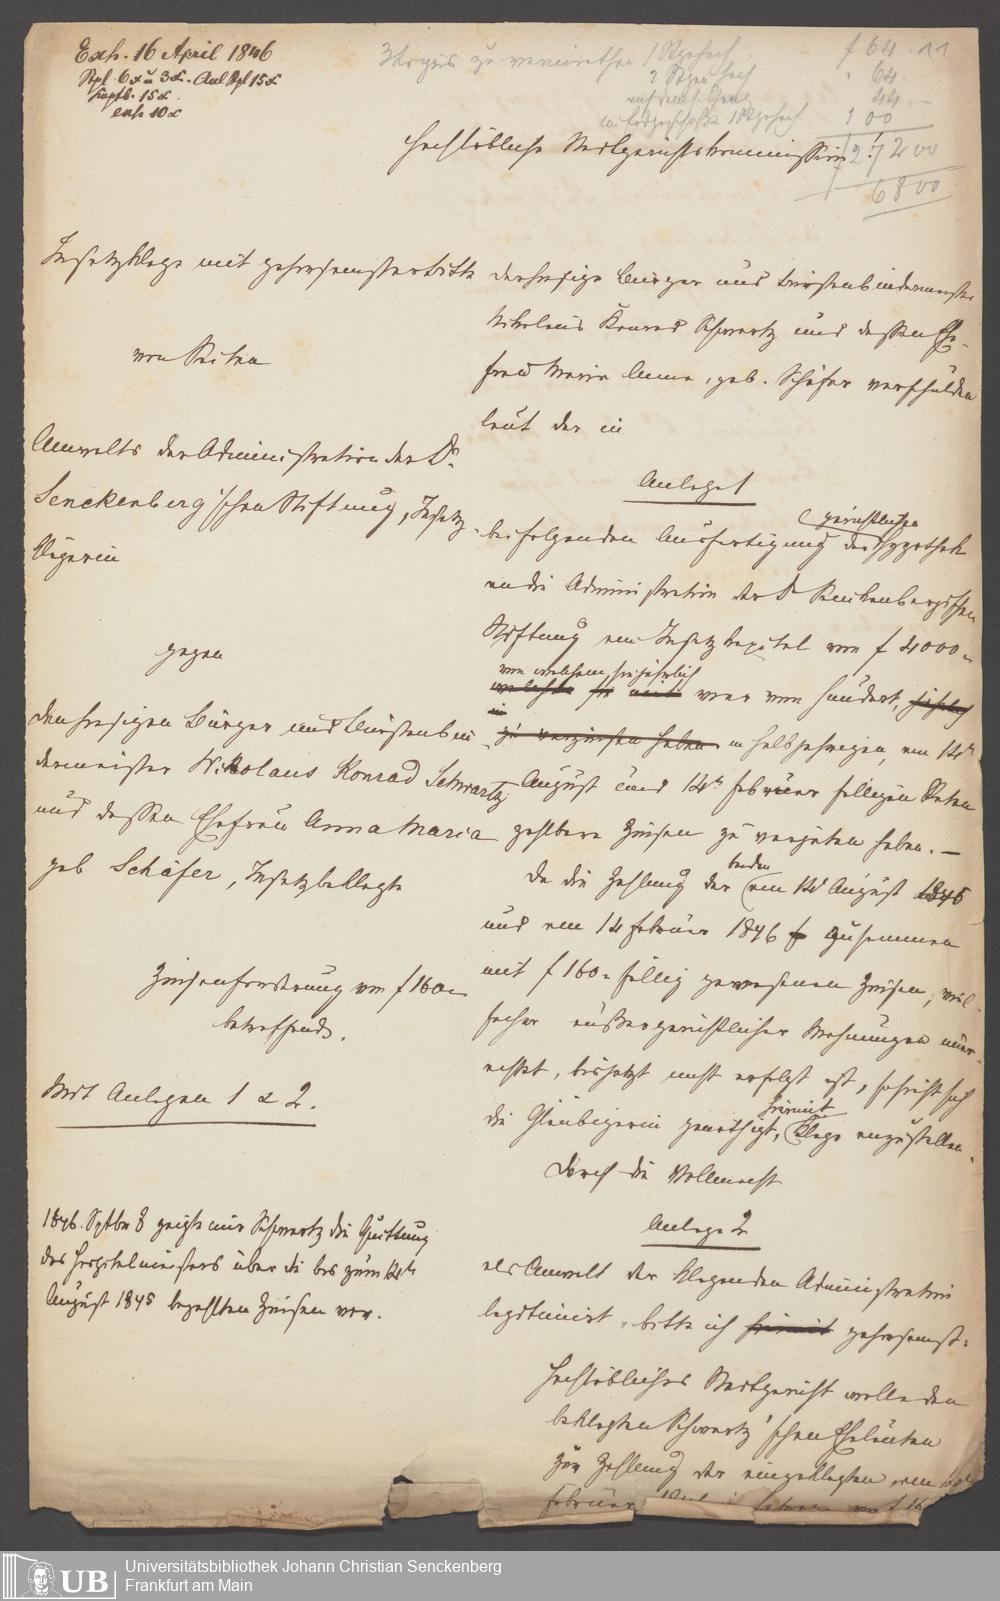 Exh. 16 April 1846
Stpl. 6 x u 3 x. Anl Stpl 15 x
Inptb. 15 x.
exh 10 x
zu vermiethen 1 Stge hoch f 64.
2 Stgen hoch " 64.
44 —
1 Stge hoch 100
272 00
68 00
Hochlöbliche Stadtgerichtskommission!
Insatzklage mit gehorsamster Bitte
von Seiten
Anwalts der Administration der Dr.
Senckenberg'schen Stiftung, Insatz-
klägerin
gegen
den hiesigen Bürger und Bürstenbin-
dermeister Nikolaus Konrad Schwartz
und dessen Ehefrau Anna Maria
geb Schäfer, Insatzbeklagte
Zinsenforderung von f 160 "
betreffend.
Mit Anlagen 1 & 2.
1846. Sptbr 8 zeigte mir Schwartz die Quittung
des Hospitalmeisters über die bis zum 14ten
August 1845 bezahlten Zinsen vor.
Der hiesige Bürger und Bürstenbindermeister
Nikolaus Konrad Schwartz und dessen Ehe-
frau Maria Anna, geb. Schäfer verschulden
laut der in
Anlage 1
gerichtlichen
beifolgenden Ausfertigung der Hypothek
an die Administration der Dr Senckenbergischen
Stiftung ein Insatzkapital von f 4000 "
von welchem sie jährlich
welches sie mit vier vom Hundert, jährlich
in
zu verzinsen haben in halbjährigen, am 14ten
August und 14ten Februar fälligen Raten
zahlbare Zinsen zu vergüten haben. —
beiden
Da die Zahlung der am 14t August 1845
und am 14 Februar 1846 f zusammen
mit f 160 " fällig gewesenen Zinsen, viel-
facher außergerichtlicher Mahnungen uner-
achtet, bis jetzt nicht erfolgt ist, so sieht sich
hiermit
die Gläubigerin genöthigt, Klage anzustellen.
Durch die Vollmacht
Anlage 2
als Anwalt der klagenden Administration
legitimirt, bitte ich hiermit gehorsamst:
Hochlöbliches Stadtgericht wolle den
beklagten Schwartz'schen Eheleuten
zur Zahlung der eingeklagten, am
Februar
Universitätsbibliothek Johann Christian Senckenberg
Frankfurt am Main
UB